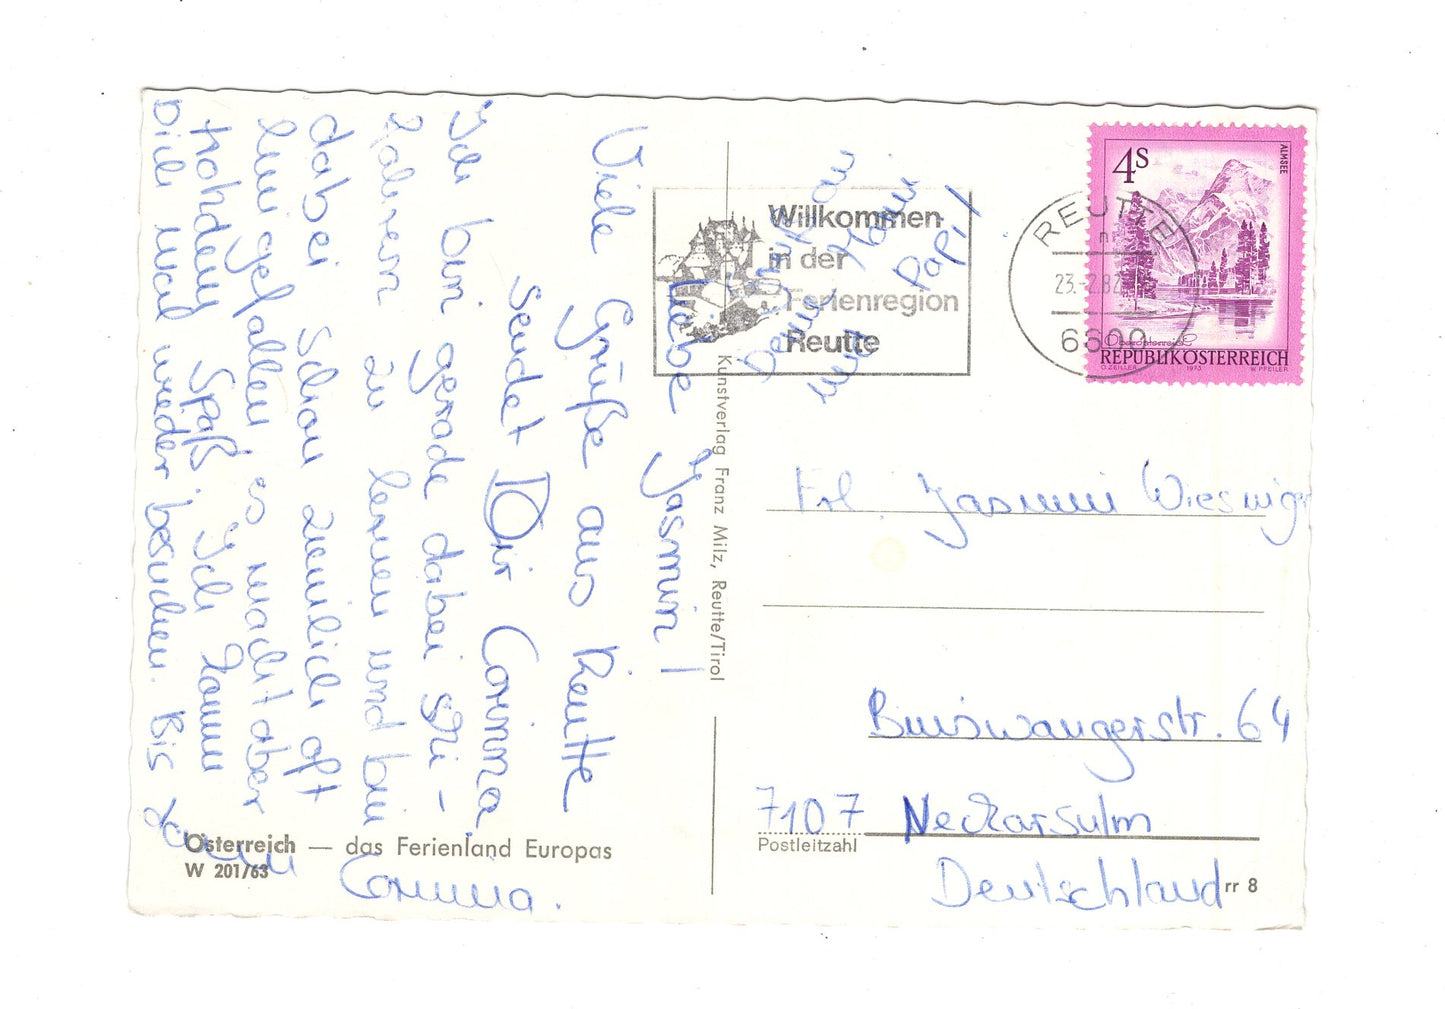 Liebe Jasmin!
Viele Grüße aus Reutte
sendet Dir Corinna.
Ich bin gerade dabei Ski-
fahren zu lernen und bin
dabei schon ziemlich oft
hingefallen es macht aber
trotzdem Spaß. Ich komm
Dich mal wieder besuchen. Bis
dann Corinna.
Österreich — das Ferienland Europas
W 201/63
Kunstverlag Franz Milz, Reutte/Tirol
Willkommen
in der
Ferienregion
Reutte
und Papi!
REUTTE
23.-2.82
6600
4 S
ALMSEE
Oberösterreich
REPUBLIK ÖSTERREICH
O. ZEILLER 1973 W. PFEILER
Frl. Jasmin
Binswangerstr. 64
7107 Neckarsulm
Postleitzahl
Deutschland
rr 8